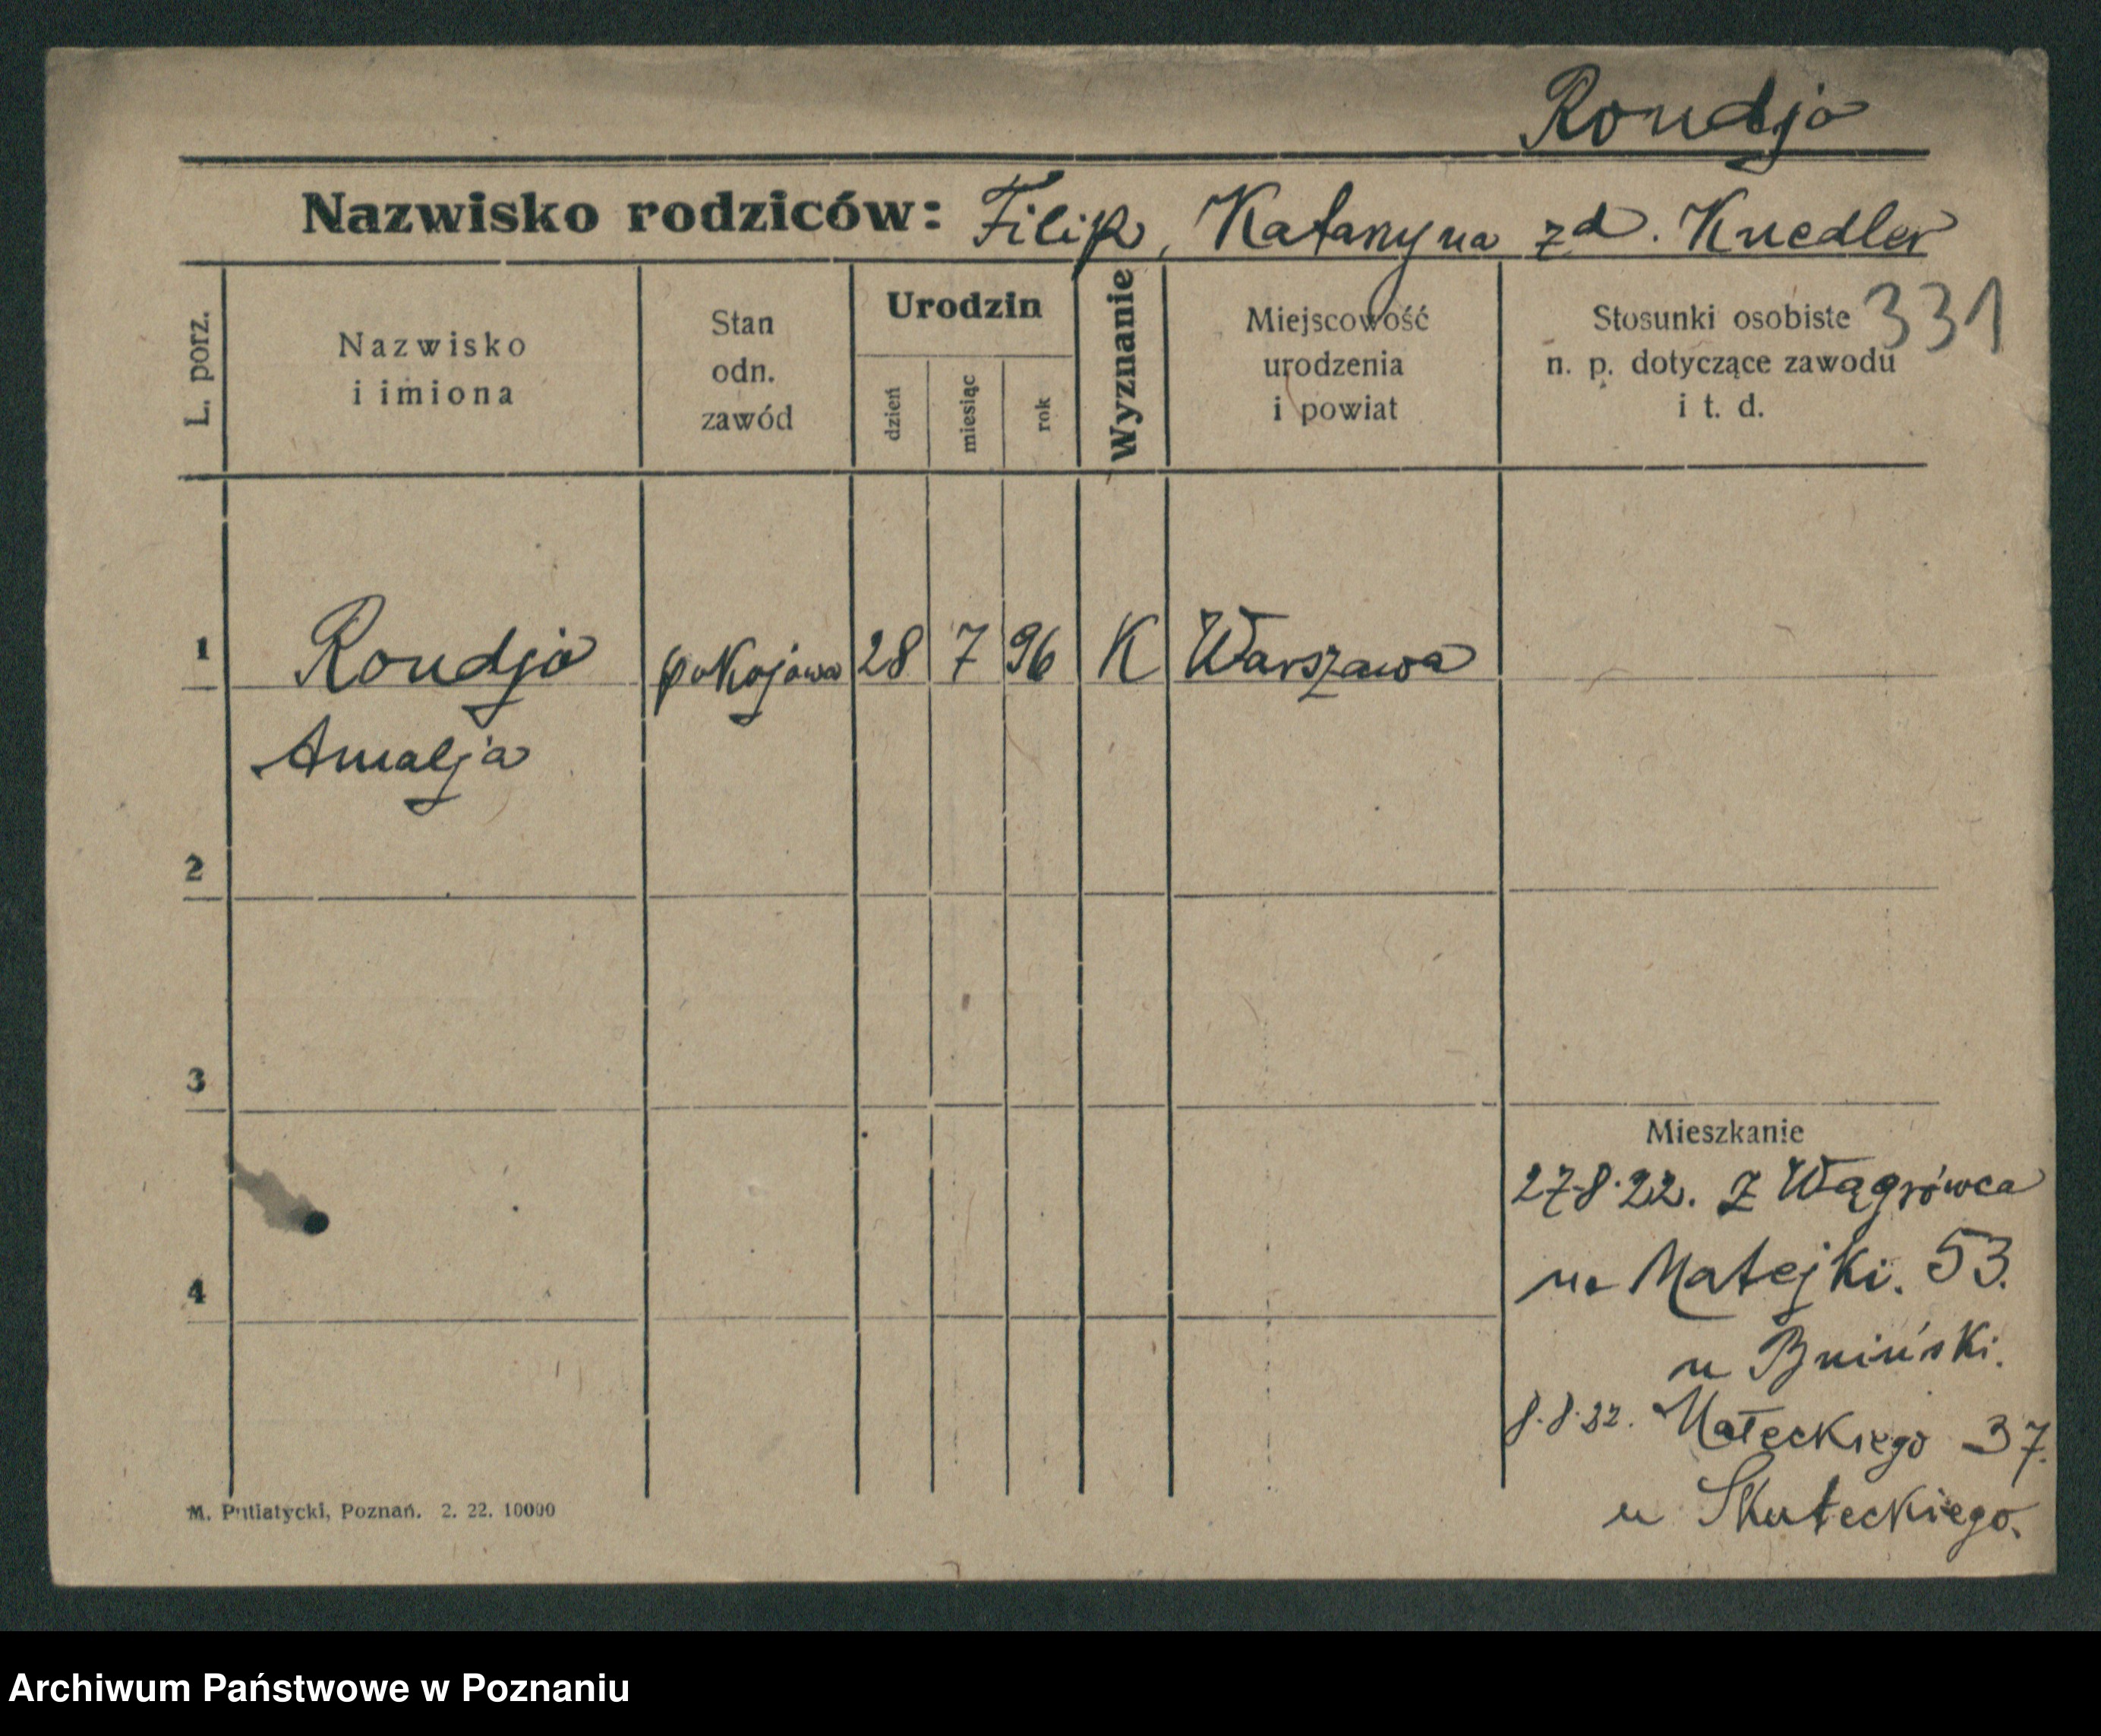 Rondjo
Nazwisko rodziców: Filip, Katarzyna zd. Knedler
331
L. porz.
Nazwisko
i imiona
Stan
odn.
zawód
Urodzin
dzień
miesiąc
rok
Wyznanie
Miejscowość
urodzenia
i powiat
Stosunki osobiste
n. p. dotyczące zawodu
i t. d.
1 Rondjo pokojowa 28 7 96 K Warszawa
Amalja
2
3
4
Mieszkanie
27.8.22. Z Wągrówca
na Matejki. 53.
u Bniński.
8.8.22. Małeckiego 37.
u Skuteckiego.
M. Putiatycki, Poznań. 2. 22. 10000
Archiwum Państwowe w Poznaniu